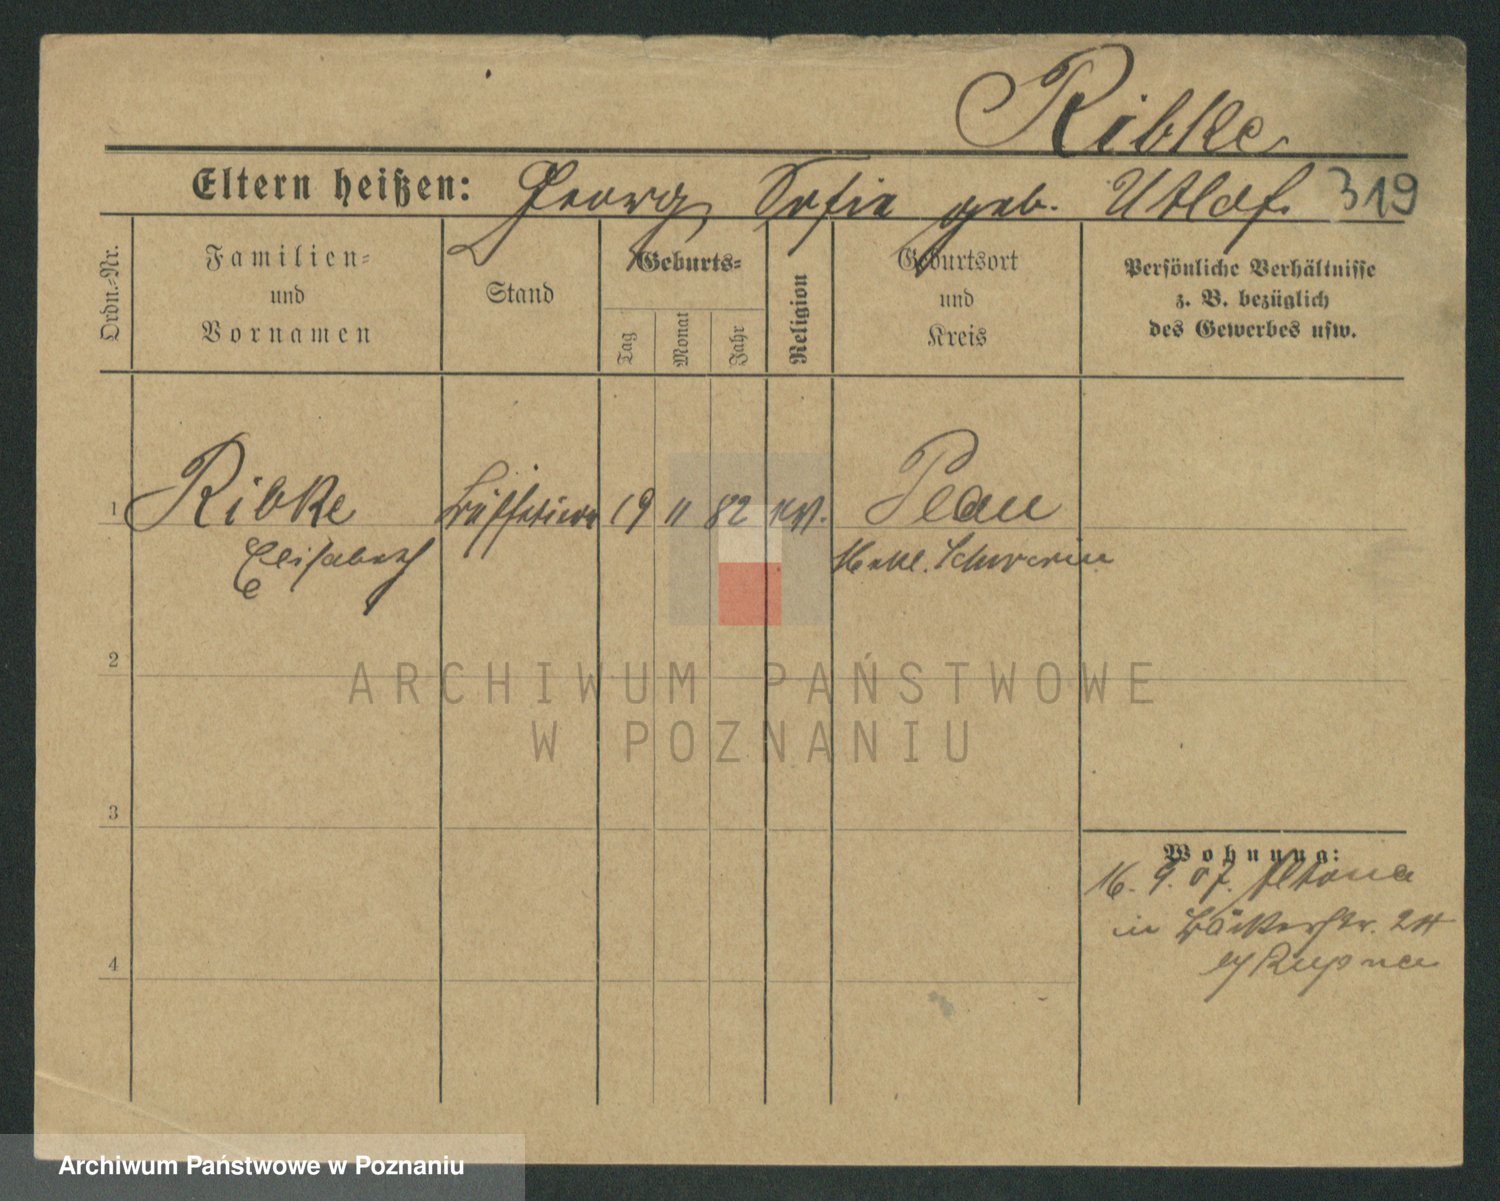 Ribke
Eltern heißen: Georg, Sofie geb. 319
Ordn.-Nr.
Familien-
und
Vornamen
Stand
Geburts-
Tag
Monat
Jahr
Religion
Geburtsort
und
Kreis
Persönliche Verhältnisse
z. B. bezüglich
des Gewerbes usw.
1 Ribke 19 11 82 ev. Plau
Elisabeth Meckl. Schwerin
2
3
4
Wohnung:
16. 9. 07. Altona
in Bäckerstr. 24
ARCHIWUM PAŃSTWOWE
W POZNANIU
Archiwum Państwowe w Poznaniu